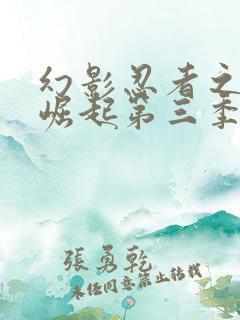 幻影忍者之
崛起第三季
張勇乾
未經同意禁止轉載